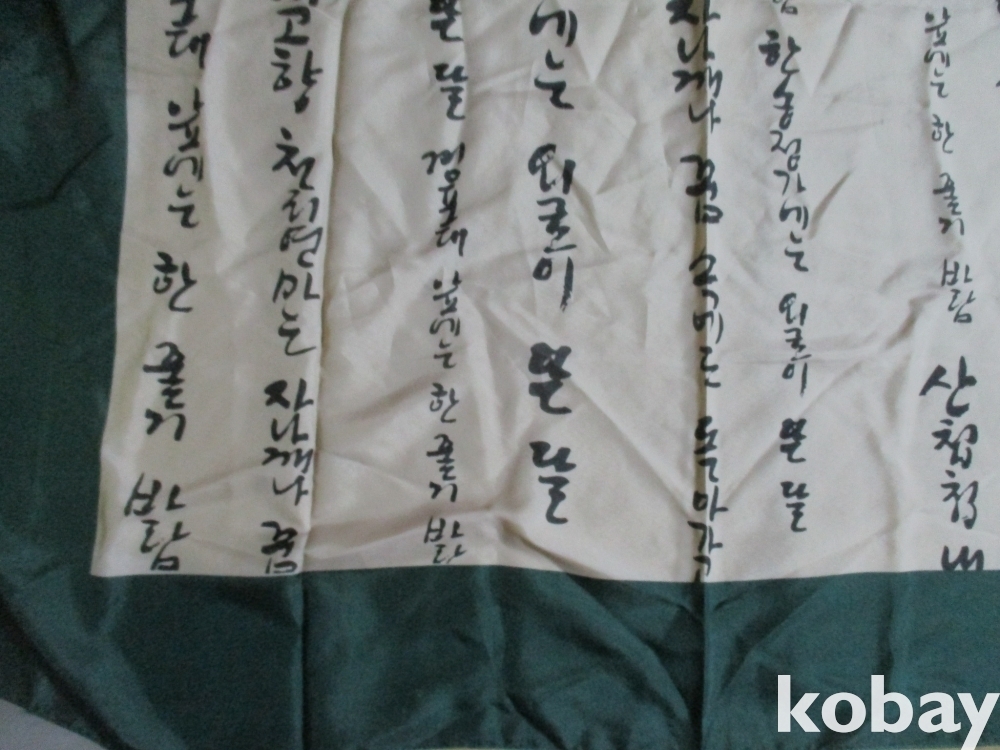 앞에는 한 줄기 바람 산첩첩 내
한송정 가에는 외로이 뜬 달
자나깨나 꿈 속에도 돌아가
에는 외로이 뜬 달
뜬 달 경포대 앞에는 한 줄기 바람
고향 천리연마는 자나깨나 꿈
대 앞에는 한 줄기 바람
kobay